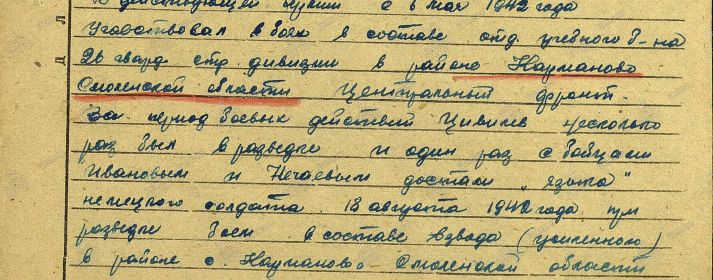 В действующей Армии с 6 мая 1942 года
Участвовал в боях в составе отд. учебного б-на
26 гвард стр. дивизии в районе Науманово
Смоленской области Центральный фронт.
За период боевых действий Цивилев несколько
раз был в разведке и один раз с бойцами
Ивановым и Нечаевым достали "языка"
немецкого солдата. 18 августа 1942 года при
разведке боем в составе взвода (усиленного)
в районе с. Науманово Смоленской области
Д Л